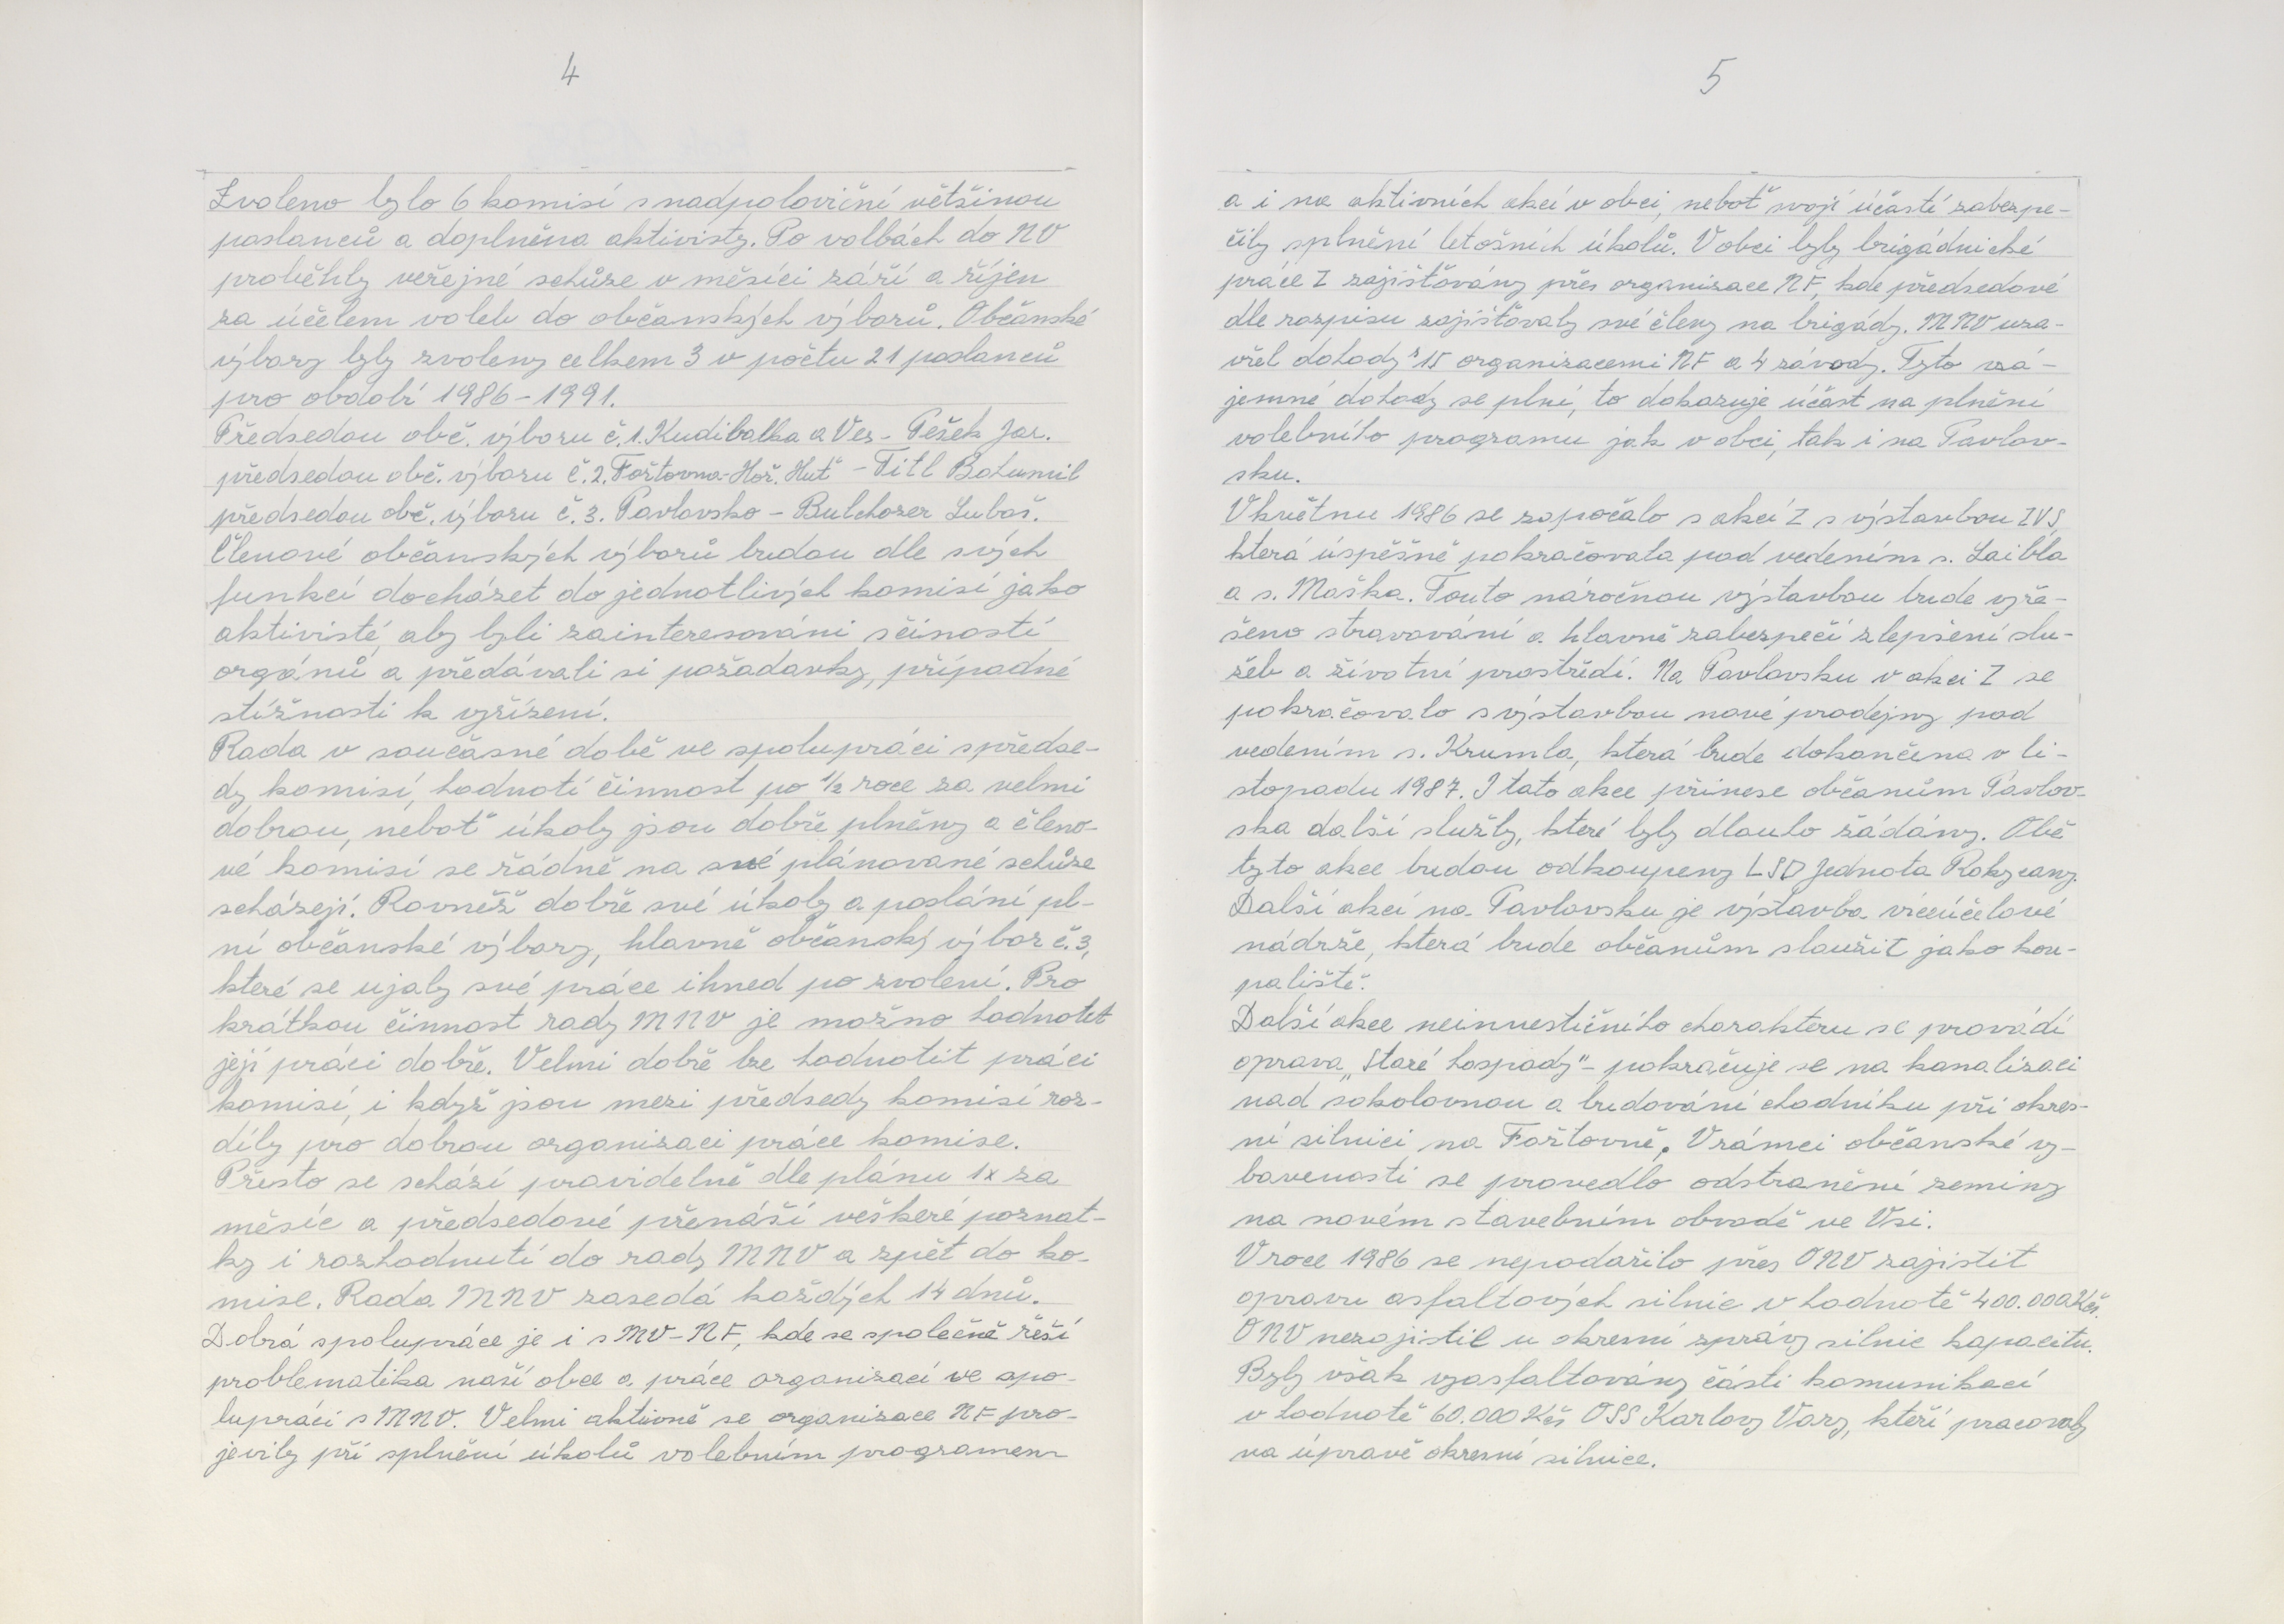 4
Zvoleno bylo 6 komisí s nadpoloviční většinou
poslanců a doplněna aktivisty. Po volbách do NV
proběhly veřejné schůze v měsíci září a říjen
za účelem voleb do občanských výborů. Občanské
výbory byly zvoleny celkem 3 v počtu 21 poslanců
pro období 1986-1991.
Předsedou obč. výboru č.1. Kudibalka a Ves - Pešek Jar.
předsedou obč. výboru č.2. Foštovna-Hoř. Huť - Titl Bohumil
předsedou obč. výboru č.3. Pavlovsko - Bulchozer Luboš.
Členové občanských výborů budou dle svých
funkcí docházet do jednotlivých komisí jako
aktivisté, aby byli zainteresováni s činností
orgánů a předávali si požadavky, případné
stížnosti k vyřízení.
Rada v současné době ve spolupráci s předse-
dy komisí, hodnotí činnost po 1/2 roce za velmi
dobrou, neboť úkoly jsou dobře plněny a členo-
vé komisí se řádně na své plánované schůze
scházejí. Rovněž dobře své úkoly a poslání pl-
ní občanské výbory, hlavně občanský výbor č.3,
které se ujaly své práce ihned po zvolení. Pro
krátkou činnost rady MNV je možno hodnotit
její práci dobře. Velmi dobře lze hodnotit práci
komisí, i když jsou mezi předsedy komisí roz-
díly pro dobrou organizaci práce komise.
Přesto se schází pravidelně dle plánu 1x za
měsíc a předsedové přenáší veškeré poznat-
ky i rozhodnutí do rady MNV a zpět do ko-
mise. Rada MNV zasedá každých 14 dnů.
Dobrá spolupráce je i s MV-NF, kde se společně řeší
problematika naší obce a práce organizací ve spo-
lupráci s MNV. Velmi aktivně se organizace NF pro-
jevily při splnění úkolů volebním programem
5
a i na aktivních akcí v obci, neboť svojí účastí zabezpe-
čily splnění letošních úkolů. V obci byly brigádnické
práce Z zajišťovány přes organizace NF, kde předsedové
dle rozpisu zajišťovaly své členy na brigády. MNV uza-
vřel dohody s 15 organizacemi NF a 4 závody. Tyto vzá-
jemné dohody se plní, to dokazuje účast na plnění
volebního programu jak v obci, tak i na Pavlov-
sku.
V květnu 1986 se započalo s akcí Z s výstavbou ZVS,
která úspěšně pokračovala pod vedením s. Laibla
a s. Maška. Touto náročnou výstavbou bude vyře-
šeno stravování a hlavně zabezpečí zlepšení slu-
žeb a životní prostředí. Na Pavlovsku v akci Z se
pokračovalo s výstavbou nové prodejny pod
vedením s. Krumla, která bude dokončena v li-
stopadu 1987. I tato akce přinese občanům Pavlov-
ska další služby, které byly dlouho žádány. Obě
tyto akce budou odkoupeny LSD Jednota Rokycany.
Další akcí na Pavlovsku je výstavba víceúčelové
nádrže, která bude občanům sloužit jako kou-
paliště.
Další akce neinvestičního charakteru se provádí
oprava „Staré hospody" - pokračuje se na kanalizaci
nad sokolovnou a budování chodníku při okres-
ní silnici na Foštovně. V rámci občanské vy-
bavenosti se provedlo odstranění zeminy
na novém stavebním obvodě ve Vsi.
V roce 1986 se nepodařilo přes ONV zajistit
opravu asfaltových silnic v hodnotě 400.000Kčs.
ONV nezajistil u okresní správy silnic kapacitu.
Byly však vyasfaltovány části komunikací
v hodnotě 60.000 Kčs OSS Karlovy Vary, kteří pracovaly
na úpravě okresní silnice.